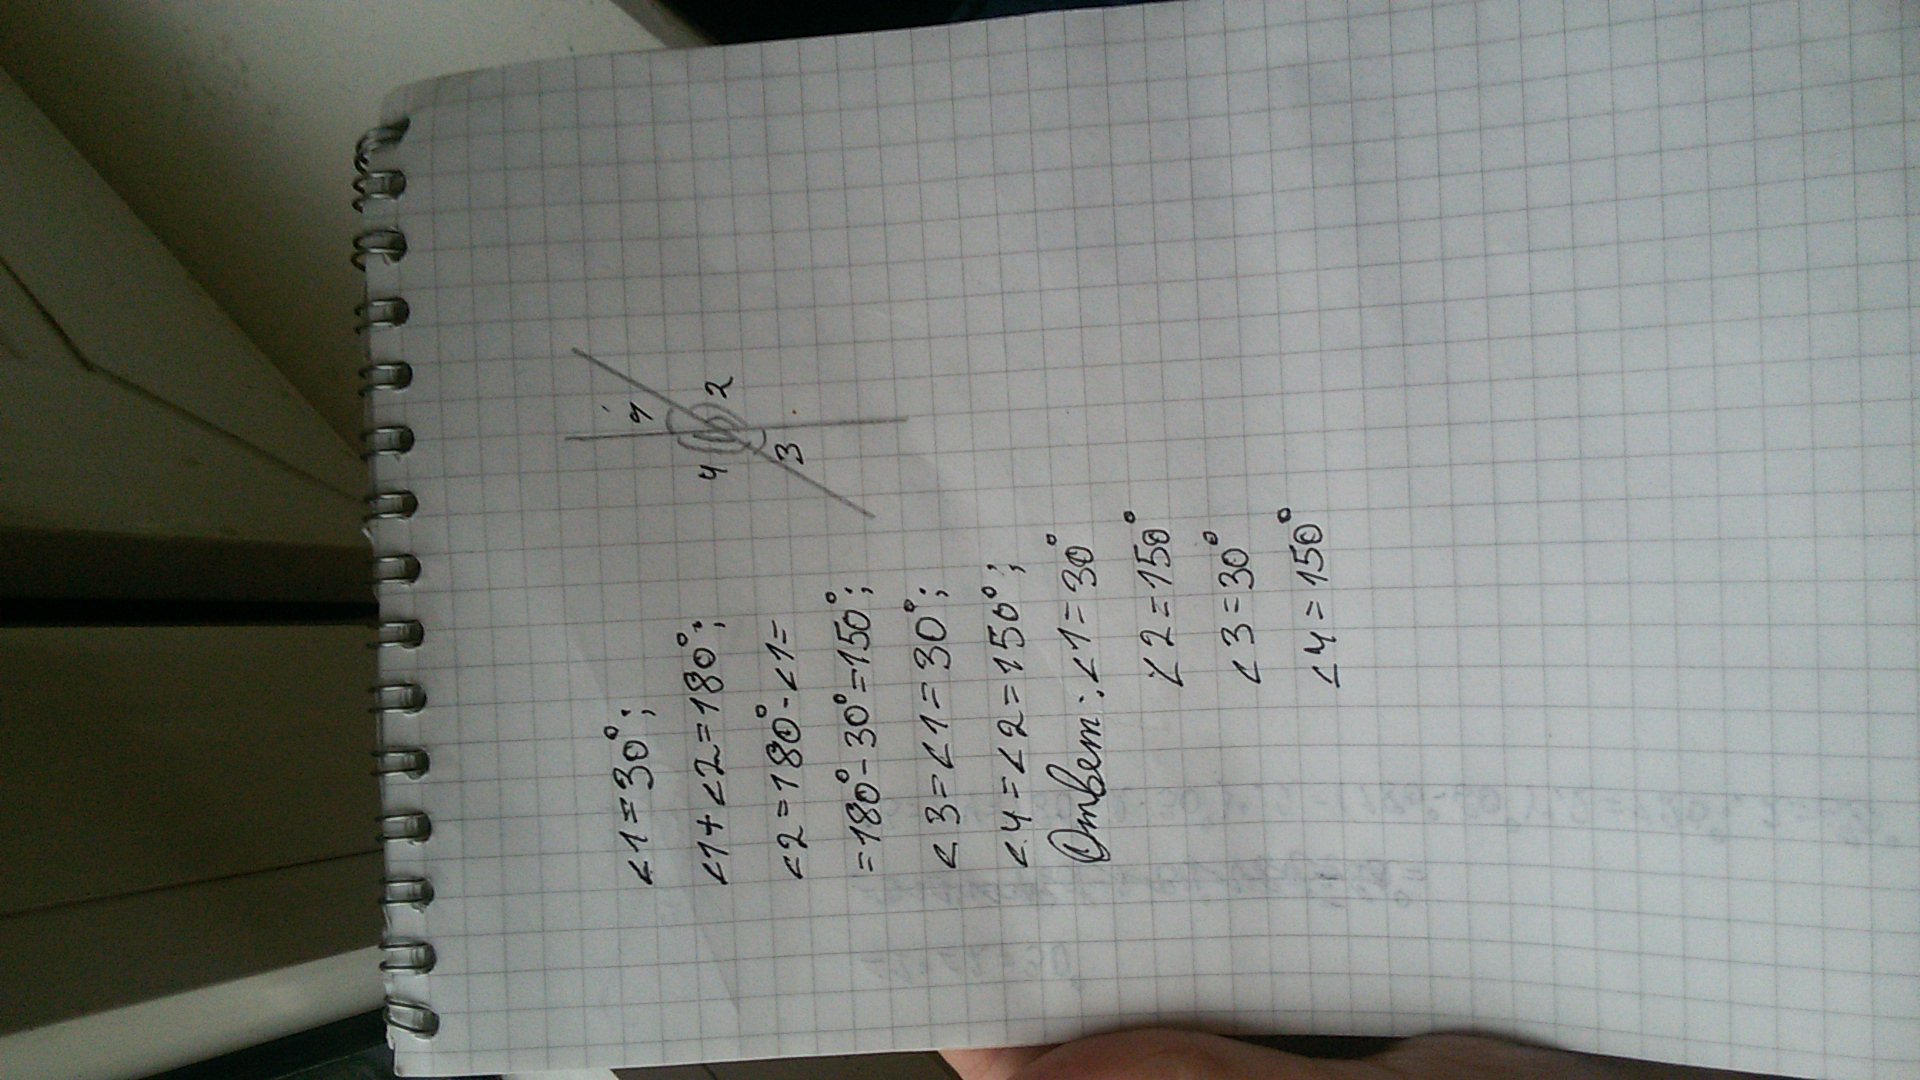 ∠1=30°;
∠1+∠2=180°;
∠2=180°-∠1=
=180°-30°=150°;
∠3=∠1=30°;
∠4=∠2=150°;
Ответ: ∠1=30°
∠2=150°
∠3=30°
∠4=150°
1
2
4
3